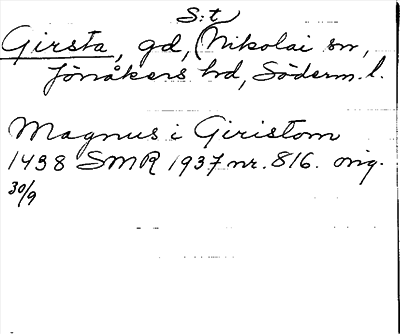 S:t
Girsta, gd, (Nikolai sn,
Jönåkers hd, Söderm. l.
Magnus i Giristom
1438 SMR 1937 nr. 816. orig.
30/9